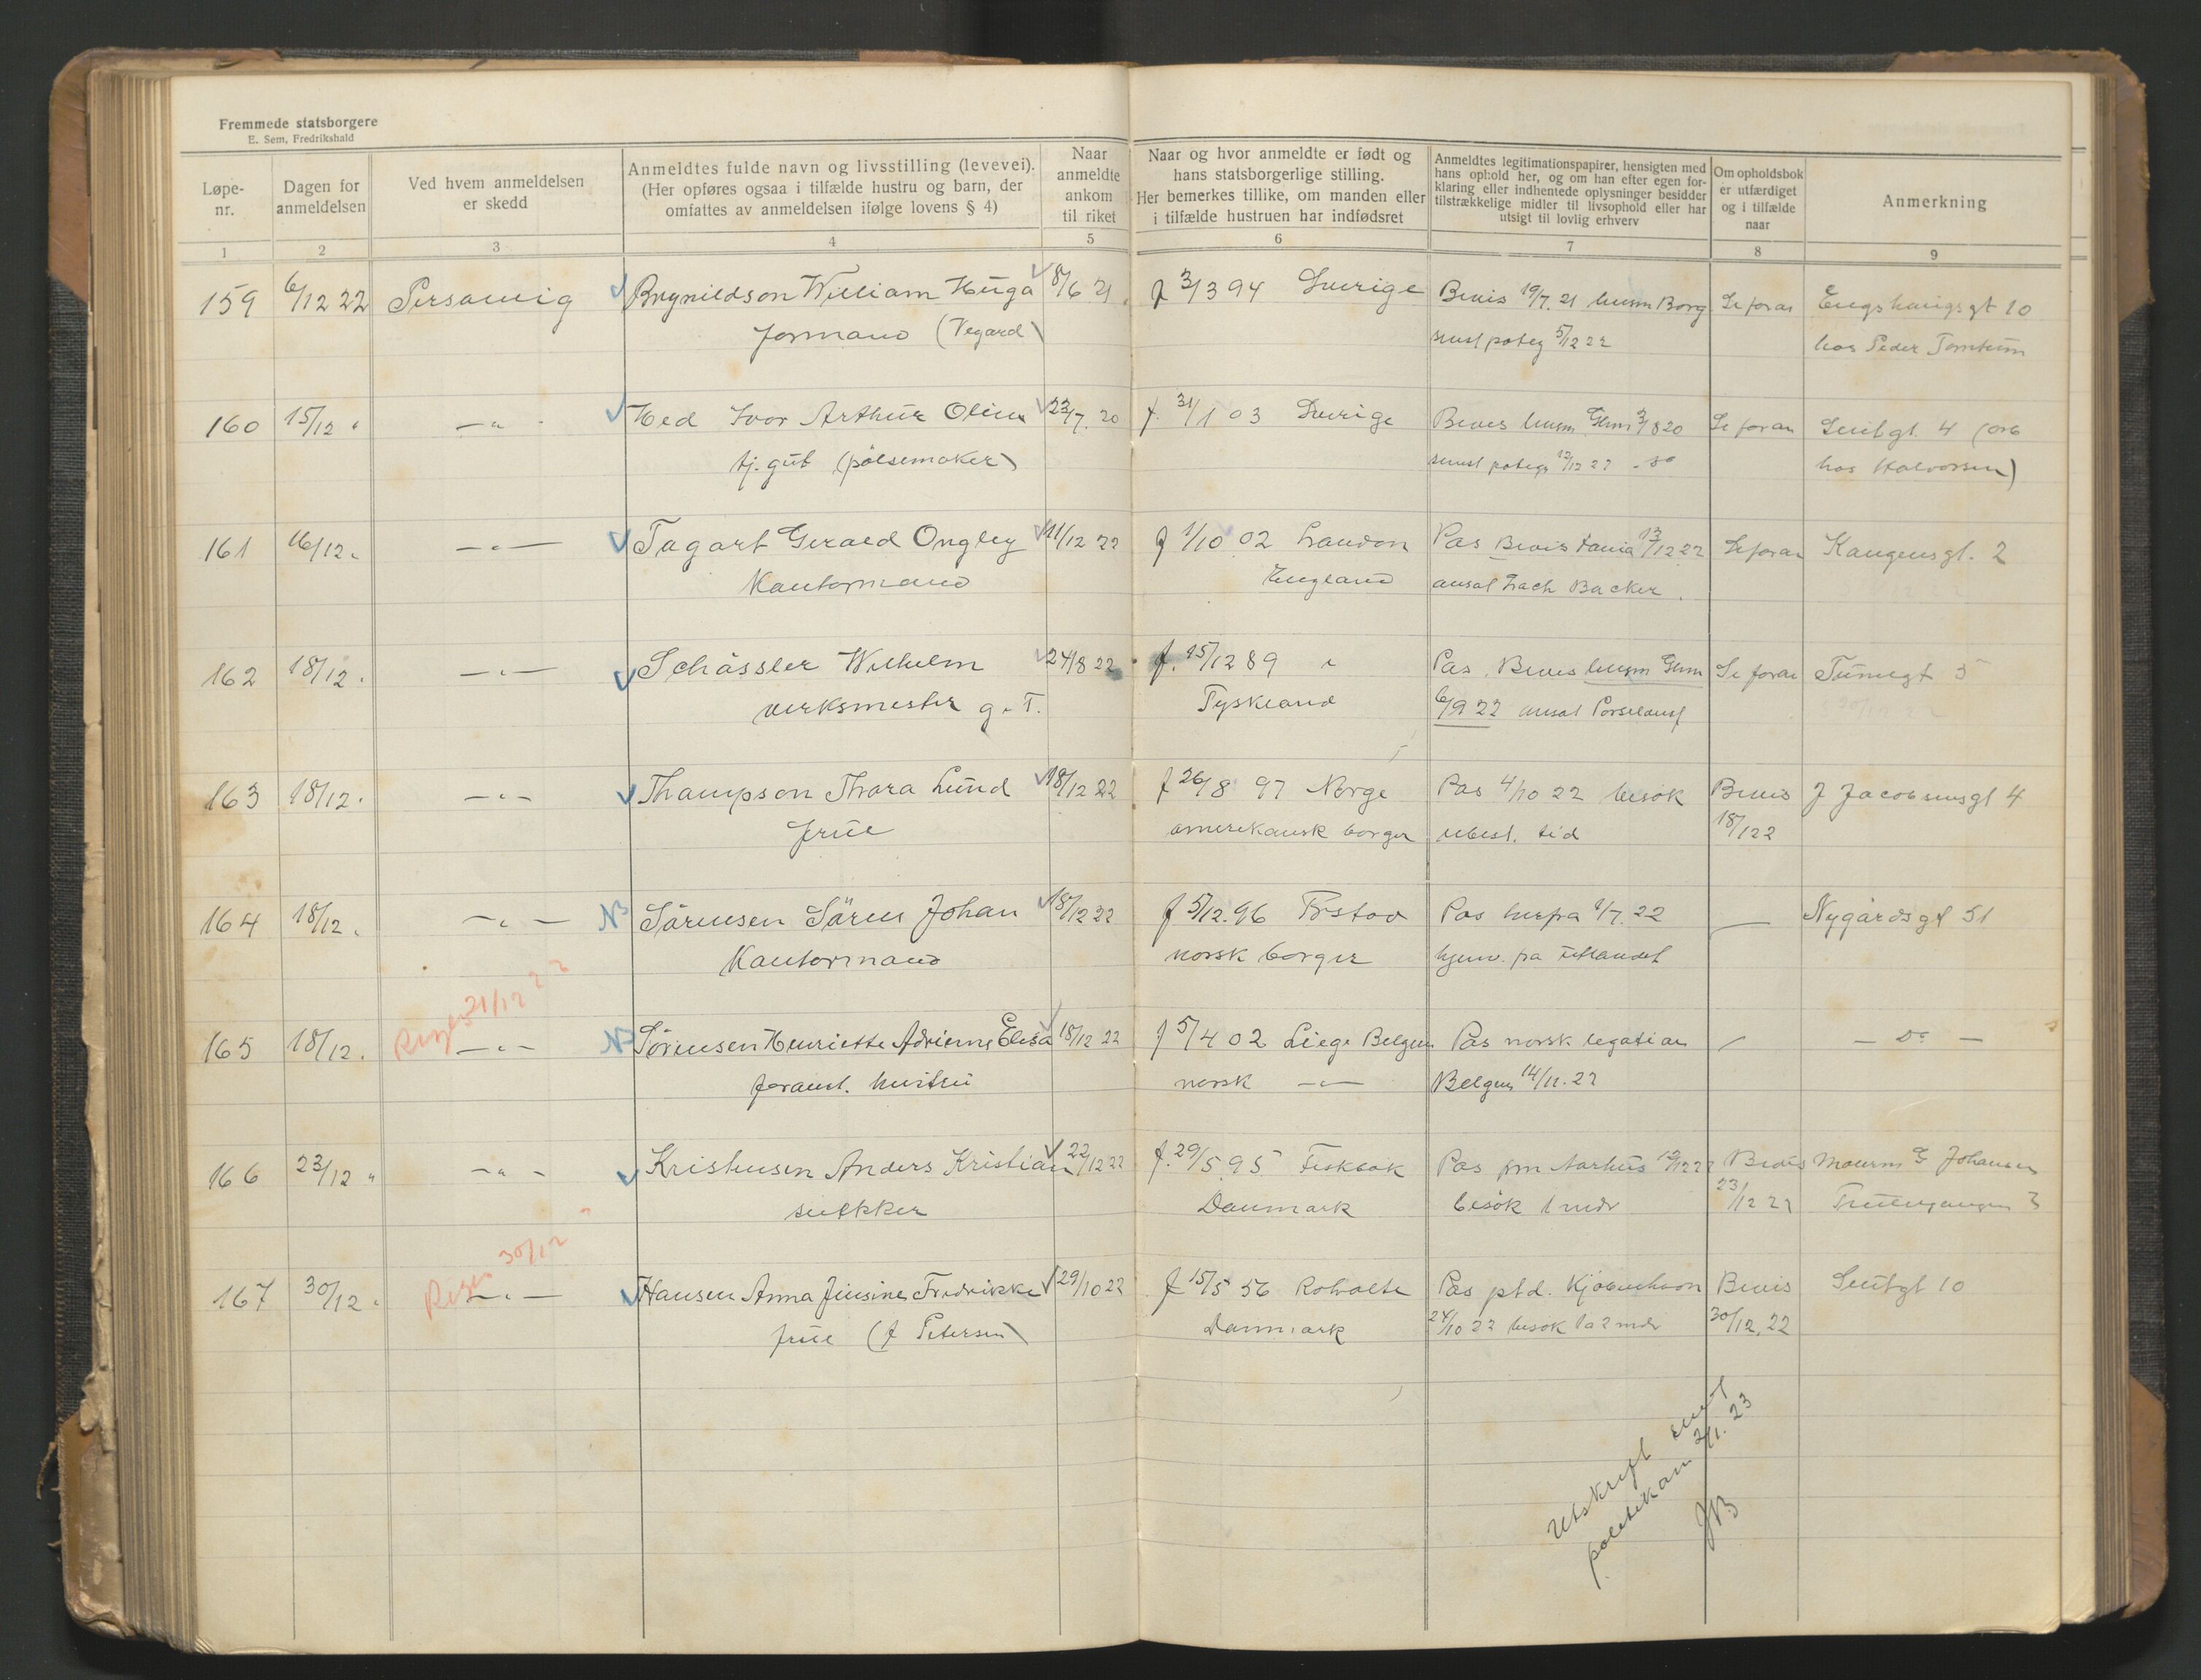 Fremmede statsborgere
E. Sem, Fredrikshald
Løpe-nr.
Dagen for anmeldelsen
Ved hvem anmeldelsen er skedd
Anmeldtes fulde navn og livsstilling (levevei).
(Her opføres ogsaa i tilfælde hustru og barn, der
omfattes av anmeldelsen ifølge lovens § 4)
Naar anmeldte ankom til riket
Naar og hvor anmeldte er født og
hans statsborgerlige stilling.
Her bemerkes tillike, om manden eller
i tilfælde hustruen har indfødsret
Anmeldtes legitimationspapirer, hensigten med
hans ophold her, og om han efter egen for-
klaring eller indhentede oplysninger besidder
tilstrækkelige midler til livsophold eller har
utsigt til lovlig erhverv
Om opholdsbok
er utfærdiget
og i tilfælde
naar
Anmerkning
1 2 3 4 5 6 7 8 9
159 6/12 22 Personlig Brynildson William Hugo 8/6 21 f 3/3 94 Sverige Bevis 19/7. 21 lensm Borg Se foran Engshaugsgt 10
formand (Vegard) senest pateg 5/12 22 hos Peder Tomtum
160 15/12 " — " - Hed Ivor Arthur Olin 22/7. 20 f. 31/1 03 Sverige Bevis lensm Glem 3/8 20 Se foran gt. 4
tj. gut (pølsemaker) senest pategn 12/12 22 hos Halvorsen)
161 16/12 " — " — Tagart Gerald Ongley 11/12 22 f 1/10 02 London Pas Bevis 13/12 22 Se foran Kongensgt. 2
Kontormand England ansat Zach Backer.
162 18/12 . — " — Schässler Wilhelm 24/8 22 f. 15/12 89 " Pas. Bevis lensm Glem Se foran Tunegt 5
verksmester g. T. Tyskland 6/9 22 ansat Porselensf
163 18/12. — " — Thompson Thora Lund 18/12 22 f 26/8 97 Norge Pas 4/10 22 besøk Bevis J Jacobsensgt 4
frue amerikansk borger ubest. tid 18/12 2
164 18/12 . — " — N Sörensen Sören Johan 18/12 22 f 5/12. 96 Pas herfra 1/7. 22 — Nygårdsgt 51
Kontormand norsk borger hjemv. fra utlandet
21/12 22
165 18/12. — " — N Sørensen Henriette Adrienne Elisa 18/12 22 f 5/4 02 Liege Belgien Pas norsk legation — Do —
foranst. hustru norsk — " — Belgien 14/11. 22
166 23/12 " — " - Kristensen Anders Kristian 22/12 22 f. 29/5 95 Pas pm Aarhus 12/12 22 Bevis Johansen
Danmark besøk 1 mdr 23/12 22 3
30/12
167 30/12 . — " — Hansen Anna Jensine Fredrikke 29/10 22 f 15/5 56 Roholte Pas ptd. Kjøbenhavn Bevis gt 10
frue (f Petersen) Danmark 24/10 22 besøk 1 a 2 mdr 30/12. 22
Utskrift sendt
politikam 2/1. 23
JB